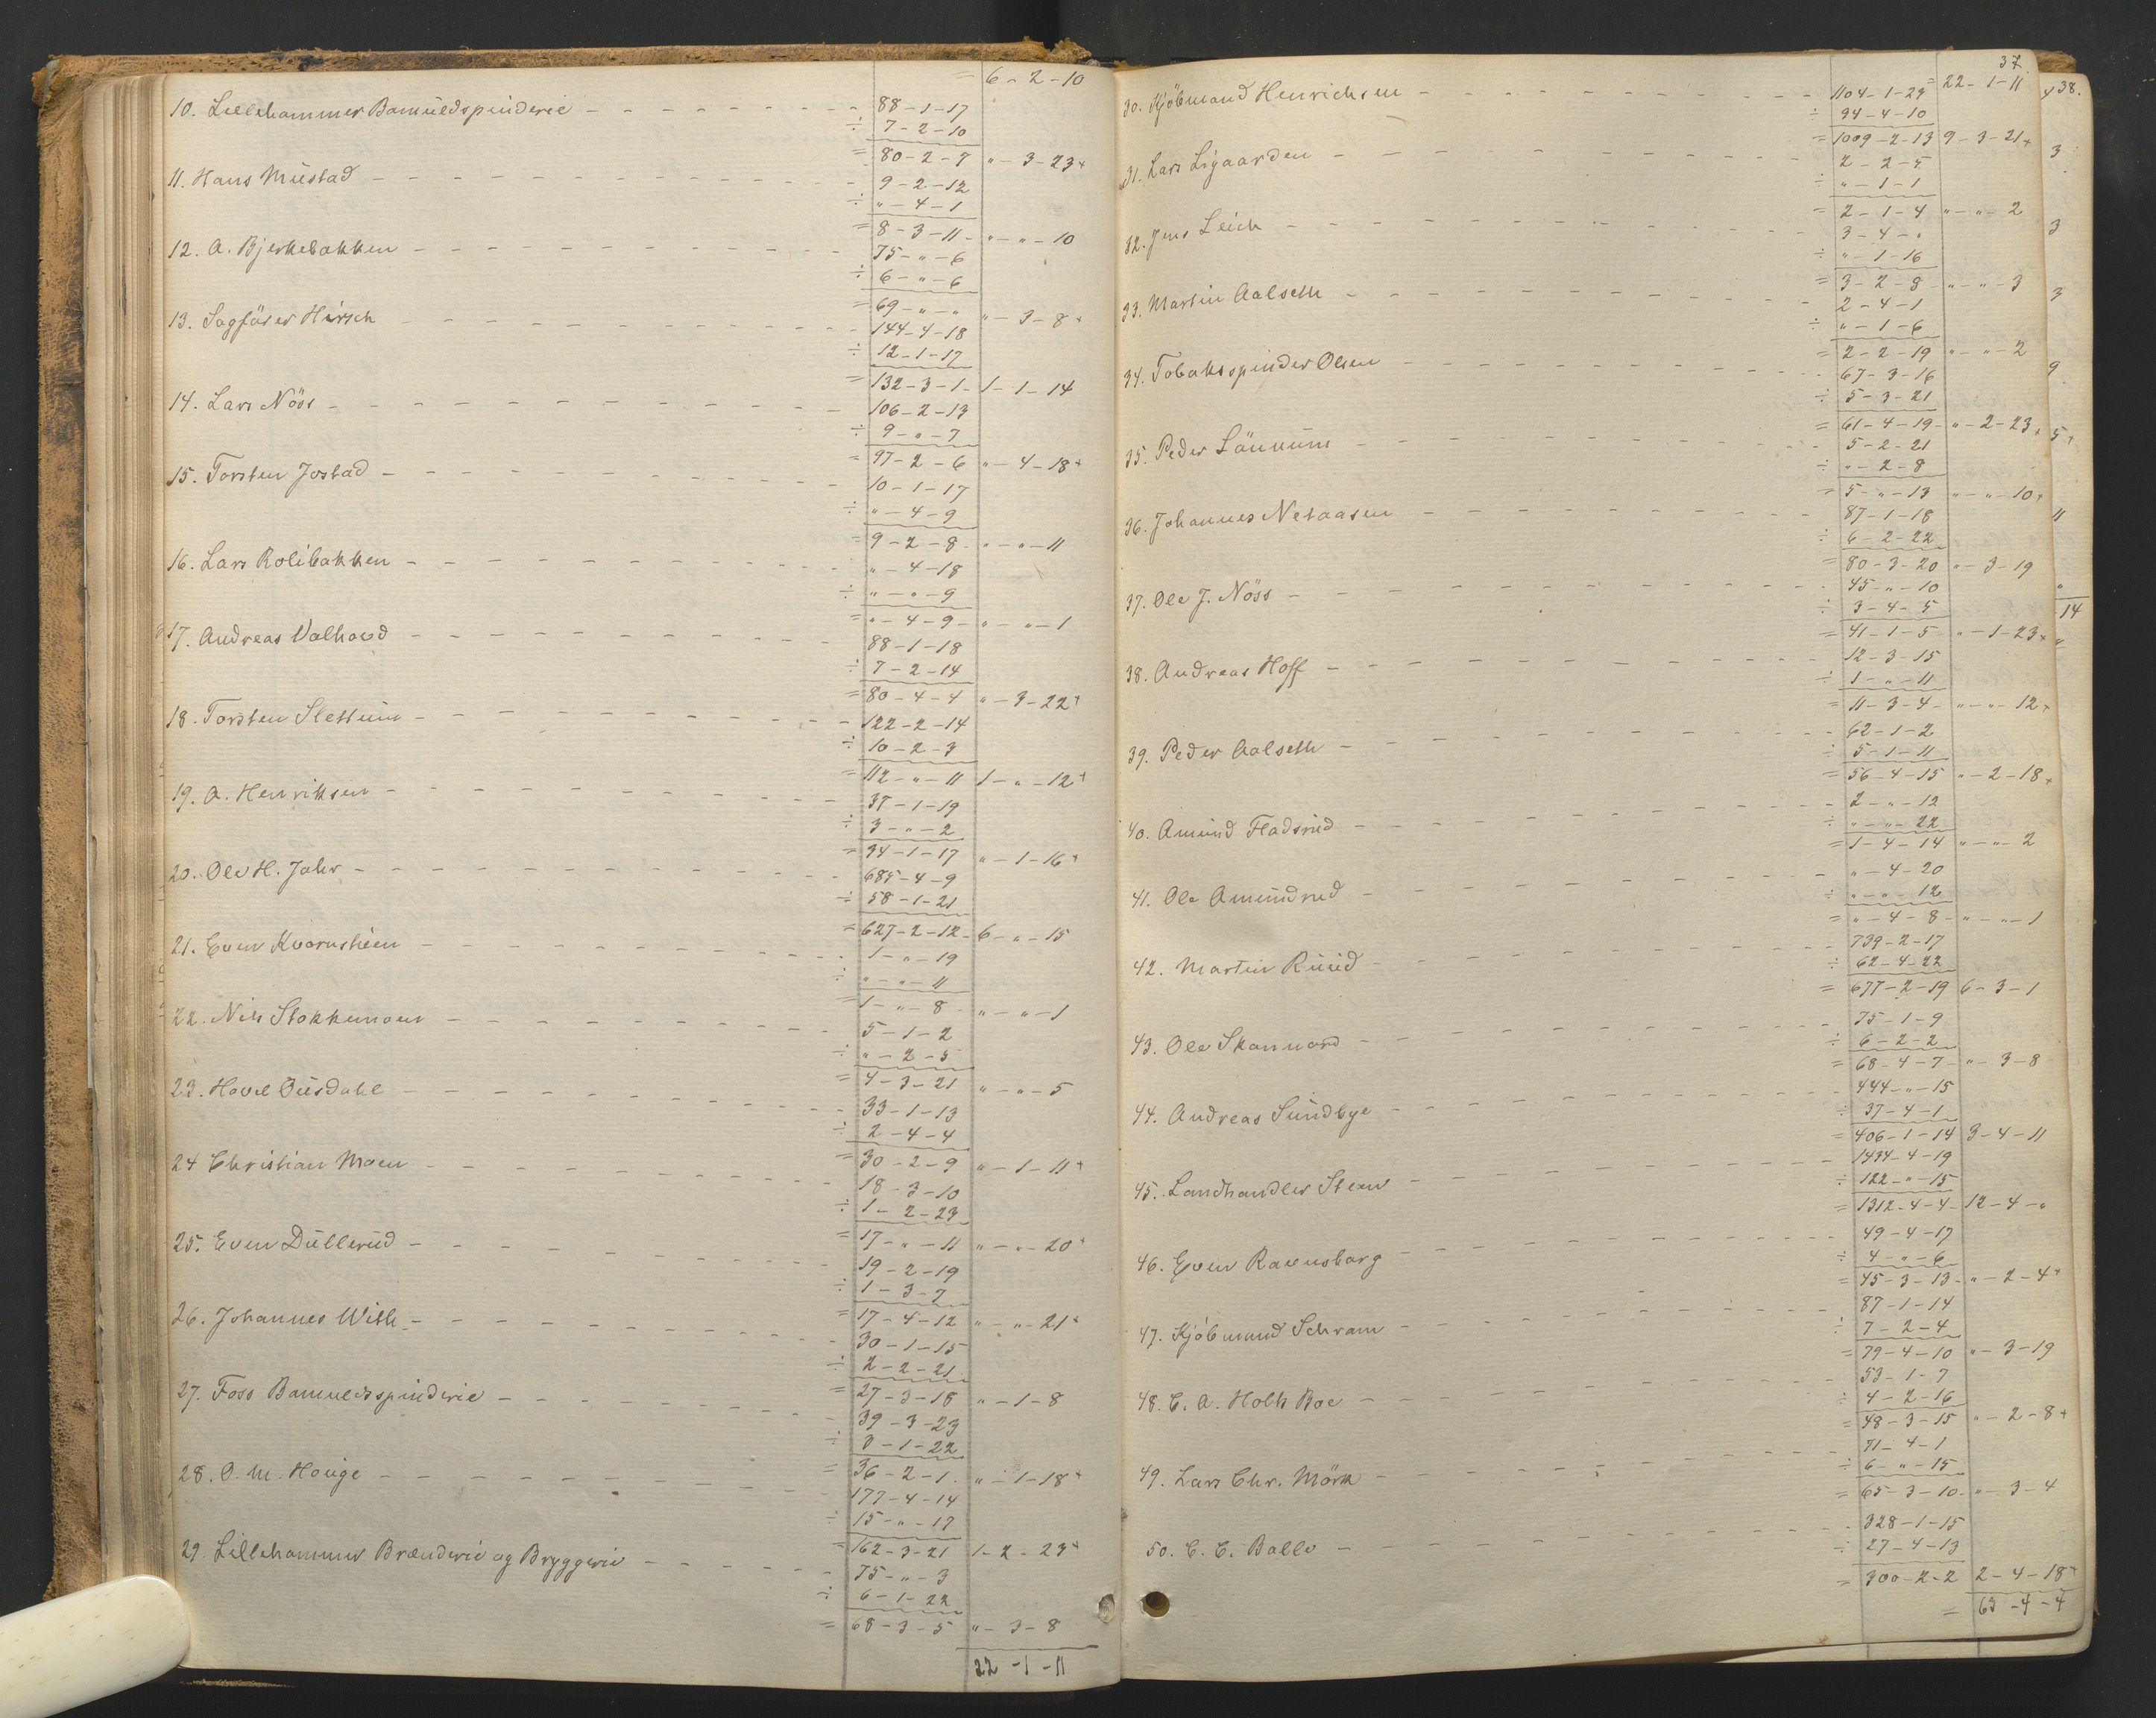 = 6 - 2 - 10
10. Lillehammer Bomuldspinderie - - - 88 - 1 - 17
÷ 7 - 2 - 10
= 80 - 2 - 7 " - 3 - 23+
11. Hans Mustad - - - 9 - 2 - 12
÷ " - 4 - 1
= 8 - 3 - 11 - " - " - 10
12. A. Bjerkebakken - - - 75 - " - 6
÷ 6 - " - 6
= 69 - " - " " - 3 - 8+
13. Sagförer Hirsch - - - 144 - 4 - 18
÷ 12 - 1 - 17
= 132 - 3 - 1 - 1 - 1 - 14
14. Lars Nöss - - - 106 - 2 - 13
÷ 9 - " - 7
= 97 - 2 - 6 " - 4 - 18+
15. Torsten Jostad - - - 10 - 1 - 17
÷ " - 4 - 9
= 9 - 2 - 8 - " - " - 11
16. Lars Rolibakken - - - " - 4 - 18
÷ " - " - 9
= " - 4 - 9 - " - " - 1
17. Andreas Valhovd - - - 88 - 1 - 18
÷ 7 - 2 - 14
= 80 - 4 - 4 " - 3 - 22+
18. Torsten Slettum - - - 122 - 2 - 14
÷ 10 - 2 - 3
= 112 - " - 11 1 - " - 12+
19. A. Henriksen - - - 37 - 1 - 19
÷ 3 - " - 2
= 34 - 1 - 17 " - 1 - 16+
20. Ole H. Jahr - - - 685 - 4 - 9
÷ 58 - 1 - 21
= 627 - 2 - 12 - 6 - " - 15
21. Even Kvarnstuen - - - 1 - " - 19
÷ " - " - 11
= 1 - " - 8 - " - " - 1
22. Nils - - - 5 - 1 - 2
÷ " - 2 - 5
= 4 - 3 - 21 " - " - 5
23. Hovel Ousdahl - - - 33 - 1 - 13
÷ 2 - 4 - 4
= 30 - 2 - 9 " - 1 - 11+
24 Christian Moen - - - 18 - 3 - 10
÷ 1 - 2 - 23
= 17 - " - 11 " - " - 20+
25. Even Dullerud - - - 19 - 2 - 19
÷ 1 - 3 - 7
= 17 - 4 - 12 " - " - 21+
26. Johannes With - - - 30 - 1 - 15
÷ 2 - 2 - 21
= 27 - 3 - 18 " - 1 - 8
27. Foss Bomuldsspinderie - - - 39 - 3 - 23
÷ 3 - 1 - 22
= 36 - 2 - 1. " - 1 - 18+
28. O. M. Hauge - - - 177 - 4 - 14
÷ 15 - " - 17
= 162 - 3 - 21 1 - 2 - 23+
29. Lillehammer Brænderie og Bryggerie - - - 75 - " - 3
÷ 6 - 1 - 22
= 68 - 3 - 5 " - 3 - 8
22 - 1 - 11
37.
= 22 - 1 - 11
30. Kjöbmand Henrichsen - - - 1104 - 1 - 29
÷ 94 - 4 - 10
= 1009 - 2 - 13 9 - 3 - 21+
31. Lars Ligaarden - - - 2 - 2 - 5
÷ " - 1 - 1
= 2 - 1 - 4 " - " - 2
32. Jens Leich - - - 3 - 4 - "
÷ " - 1 - 16
= 3 - 2 - 8 - " - " - 3
33. Martin Aalseth - - - 2 - 4 - 1
÷ " - 1 - 6
= 2 - 2 - 19 " - " - 2
34. Tobaksspinder Olsen - - - 67 - 3 - 16
÷ 5 - 3 - 21
= 61 - 4 - 19 - " - 2 - 23+
35. Peder Lönnum - - - 5 - 2 - 21
÷ " - 2 - 8
= 5 - " - 13 " - " - 10+
36. Johannes Netaasen - - - 87 - 1 - 18
÷ 6 - 2 - 22
= 80 - 3 - 20 " - 3 - 19
37. Ole J. Nöss - - - 45 - " - 10
÷ 3 - 4 - 5
= 41 - 1 - 5 - " - 1 - 23+
38. Andreas Hoff - - - 12 - 3 - 15
÷ 1 - " - 11
= 11 - 3 - 4 - " - " - 12+
39. Peder Aalseth - - - 62 - 1 - 2
÷ 5 - 1 - 11
= 56 - 4 - 15 " - 2 - 18+
40. Amund Fladsrud - - - 2 - " - 12
÷ " - " - 22
= 1 - 4 - 14 " - " - 2
41. Ole Amundrud - - - " - 4 - 20
÷ " - " - 12
= " - 4 - 8 - " - " - 1
42. Martin Ruud - - - 739 - 2 - 17
÷ 62 - 4 - 22
= 677 - 2 - 19 6 - 3 - 1
43. Ole Skannord - - 75 - 1 - 9
÷ 6 - 2 - 2
= 68 - 4 - 7 - " - 3 - 8
44. Andreas Sundbye - - - 444 - " - 15
÷ 37 - 4 - 1
= 406 - 1 - 14 3 - 4 - 11
45. Landhandler Steen - - - 1434 - 4 - 19
÷ 122 - " - 15
= 1312 - 4 - 4 - 12 - 4 - "
46. Even Ravnsborg - - - 49 - 4 - 17
÷ 4 - " - 6
= 45 - 3 - 13 - " - 2 - 4+
47. Kjöbmand Schram - - - 87 - 1 - 14
÷ 7 - 2 - 4
= 79 - 4 - 10 " - 3 - 19
48. C. A. Holth Boe - - - 53 - 1 - 7
÷ 4 - 2 - 16
= 48 - 3 - 15 " - 2 - 8+
49. Lars Chr. Mörk - - - 71 - 4 - 1
÷ 6 - " - 15
= 65 - 3 - 10 - " - 3 - 4
50. C. C. Balle - - - 328 - 1 - 15
÷ 27 - 4 - 13
= 300 - 2 - 2 2 - 4 - 18+
= 63 - 4 - 4
38.
4
3
3
3
9
5+
11
"
14